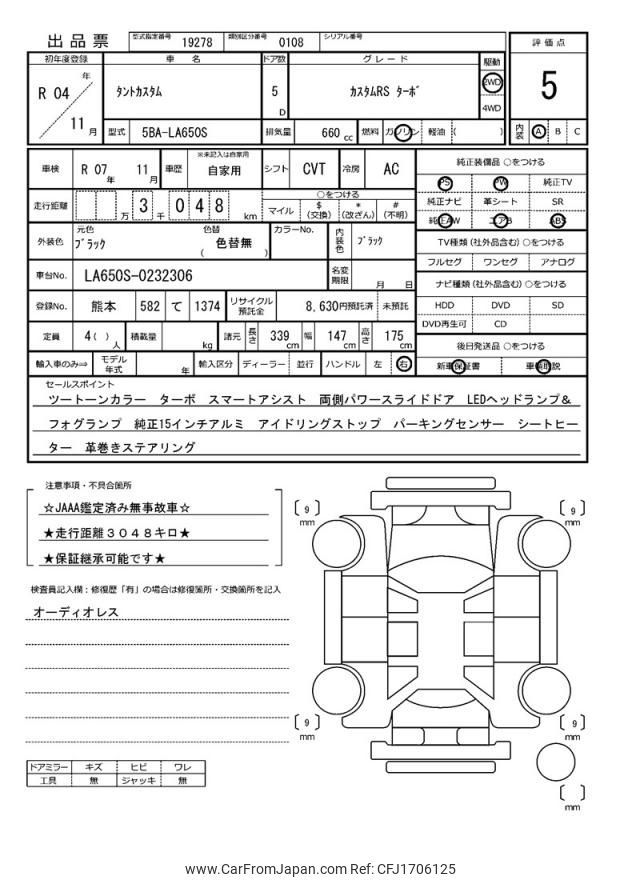 出品票 型式指定番号 19278 類別区分番号 0108 シリアル番号
評価点
初年度登録 車名 ドア数 グレード 駆動
R 04 年 11 月
タントカスタム 5 D カスタムRS ターボ 2WD 4WD
5
型式 5BA-LA650S 排気量 660 cc 燃料 ガソリン 軽油 ( )
内装 A B C
車検 R 07 年 11 月 車歴 ※未記入は自家用 自家用 シフト CVT 冷房 AC
純正装備品 ○をつける
PS PW 純正TV
純正ナビ 革シート SR
純正AW エアB ABS
走行距離 万 3 千 0 4 8 km
○をつける
マイル $(交換) *(改ざん) #(不明)
外装色 元色 ブラック 色替 色替無 ( ) カラーNo. 内装色 ブラック
TV種類(社外品含む)○をつける
フルセグ ワンセグ アナログ
車台No. LA650S-0232306 名変期限 月 日
ナビ種類(社外品含む)○をつける
HDD DVD SD
DVD再生可 CD
登録No. 熊本 582 て 1374 リサイクル預託金 8,630円預託済 未預託
定員 4( )人 積載量 kg 諸元 長さ 339 cm 幅 147 cm 高さ 175 cm
後日発送品 ○をつける
新車保証書 車輌取説
輸入車のみ⇒ モデル年式 年 輸入区分 ディーラー 並行 ハンドル 左 右
セールスポイント
ツートーンカラー ターボ スマートアシスト 両側パワースライドドア LEDヘッドランプ&
フォグランプ 純正15インチアルミ アイドリングストップ パーキングセンサー シートヒー
ター 革巻きステアリング
注意事項・不具合箇所
☆JAAA鑑定済み無事故車☆
★走行距離3048キロ★
★保証継承可能です★
検査員記入欄:修復歴「有」の場合は修復箇所・交換箇所を記入
オーディオレス
[ 9 ] mm
[ 9 ] mm
[ 9 ] mm
[ 9 ] mm
[ ] mm
ドアミラー キズ ヒビ ワレ
工具 無 ジャッキ 無
www.CarFromJapan.com Ref: CFJ1706125